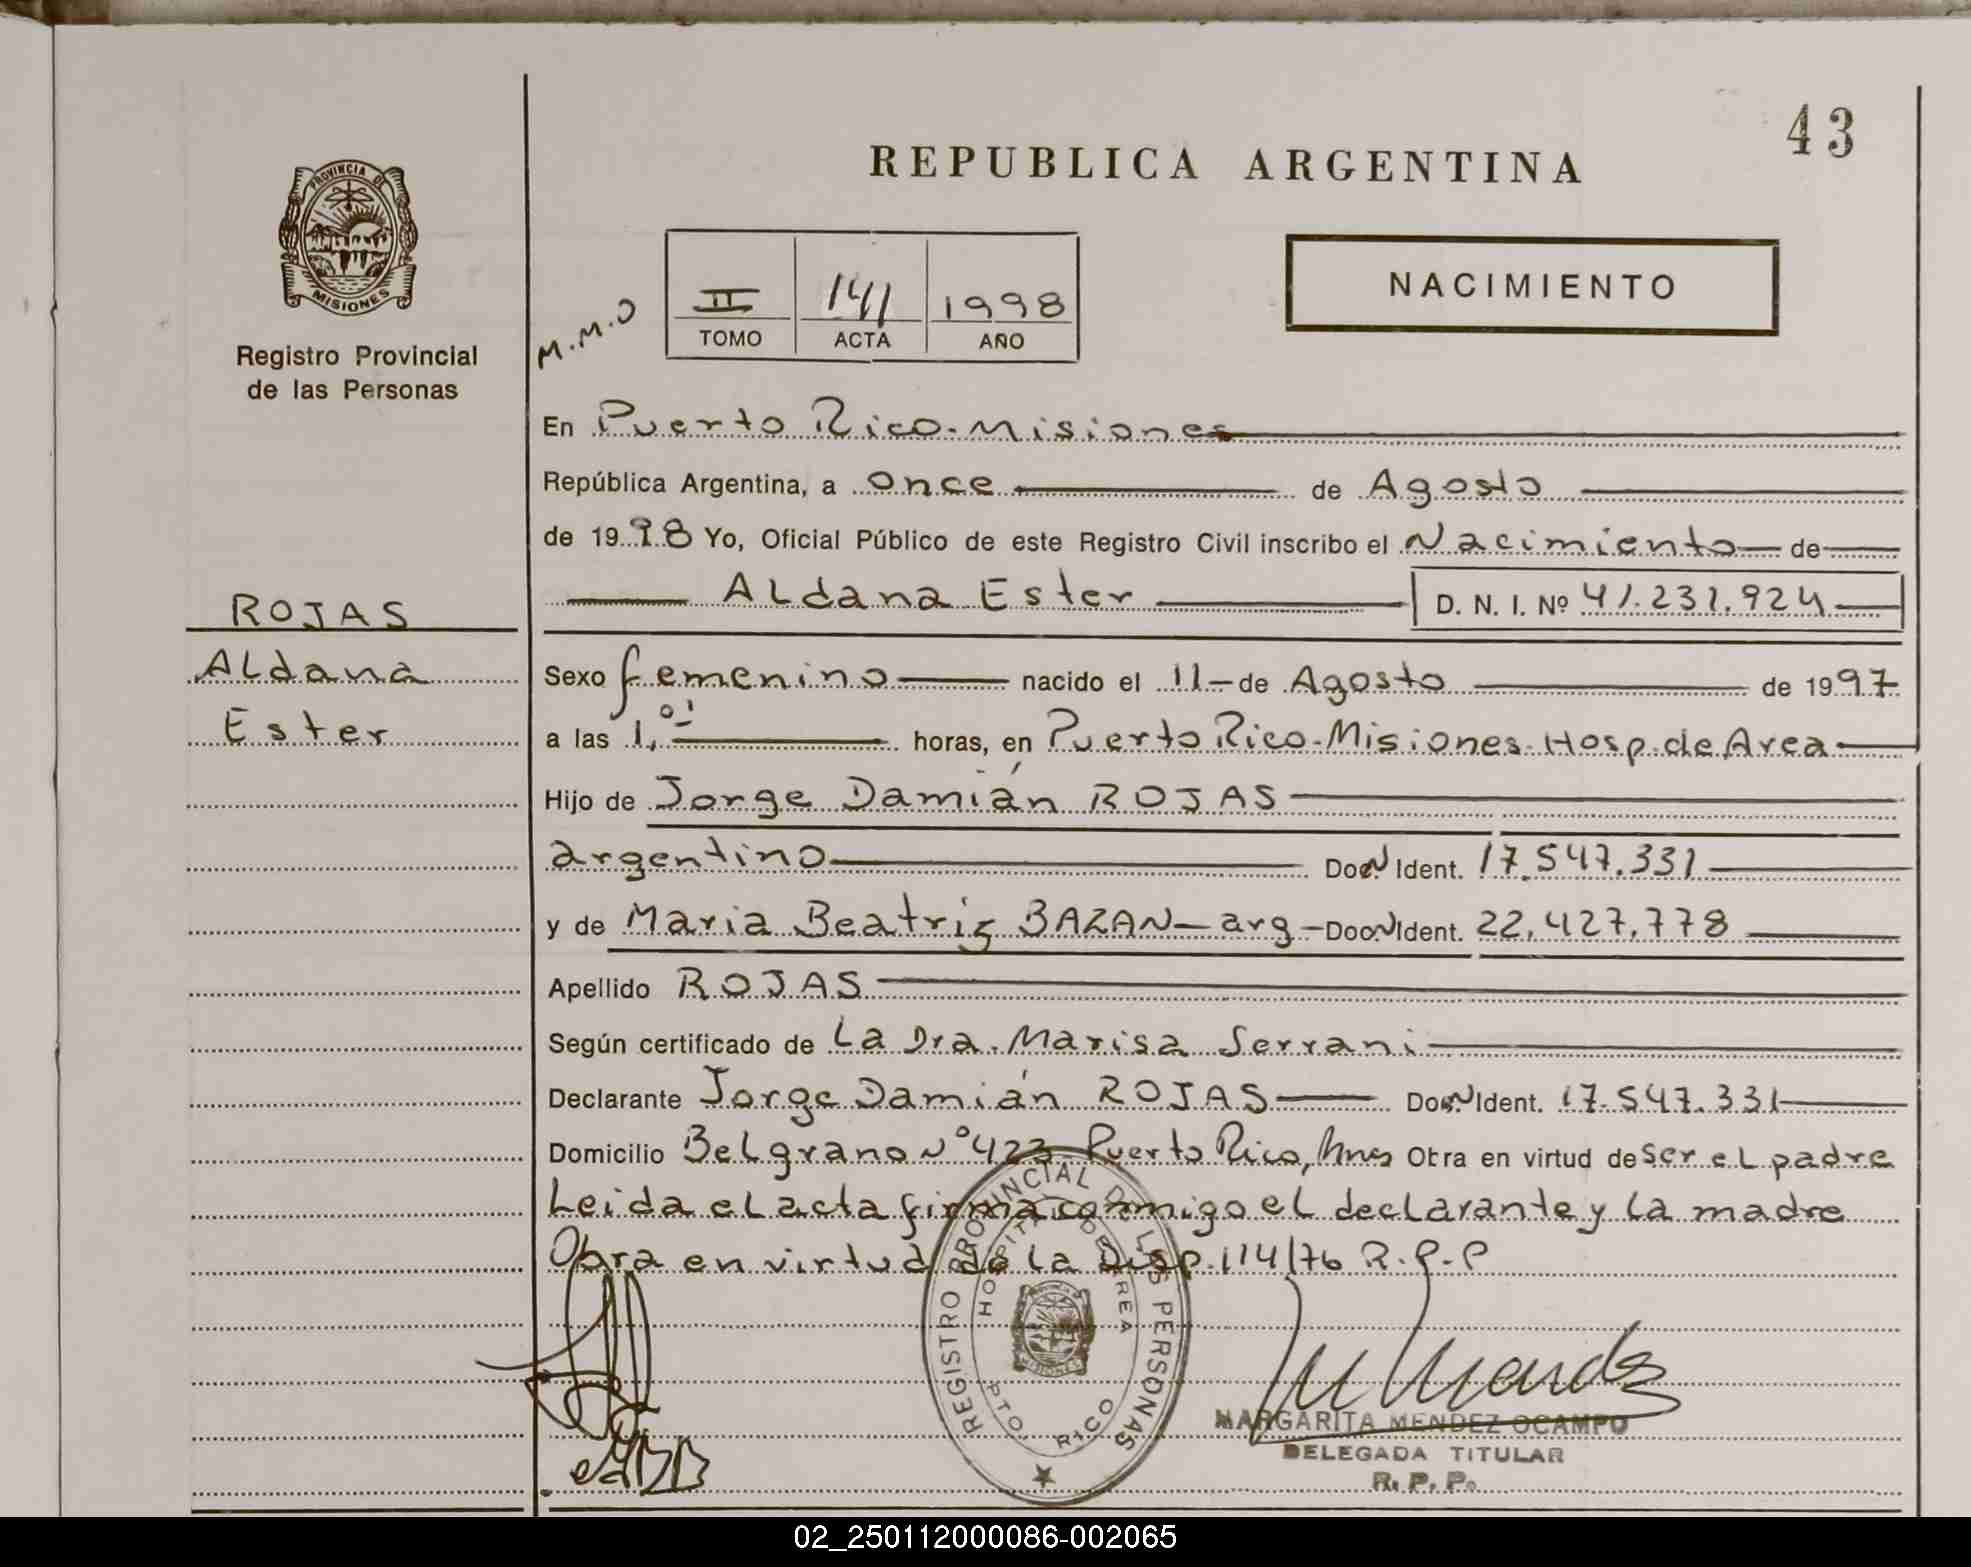 43
REPUBLICA ARGENTINA
PROVINCIA DE
MISIONES
Registro Provincial
de las Personas
M.M.O
II 141 1998
TOMO ACTA AÑO
NACIMIENTO
En Puerto Rico-Misiones
República Argentina, a once de Agosto
de 1998 Yo, Oficial Público de este Registro Civil inscribo el Nacimiento de
Aldana Ester D. N. I. Nº 41.231.924
ROJAS
Aldana
Ester
Sexo femenino nacido el 11 de Agosto de 1997
a las 1,01 horas, en Puerto Rico-Misiones-Hosp.de Area
Hijo de Jorge Damián ROJAS
argentino Doc.N Ident. 17.547.331
y de Maria Beatriz BAZAN-arg-Doc.N Ident. 22.427.778
Apellido ROJAS
Según certificado de La Dra. Marisa Serrani
Declarante Jorge Damián ROJAS Doc.N Ident. 17.547.331
Domicilio Belgrano Nº 423 Puerto Rico, Mnes Obra en virtud de ser el padre
Leida el acta firma conmigo el declarante y la madre
Obra en virtud de la Disp.114/76 R.P.P
REGISTRO PROVINCIAL DE LAS PERSONAS
HOSPITAL DE AREA
MISIONES
PTO. RICO
MARGARITA MENDEZ OCAMPO
DELEGADA TITULAR
R. P. P.
02_250112000086-002065